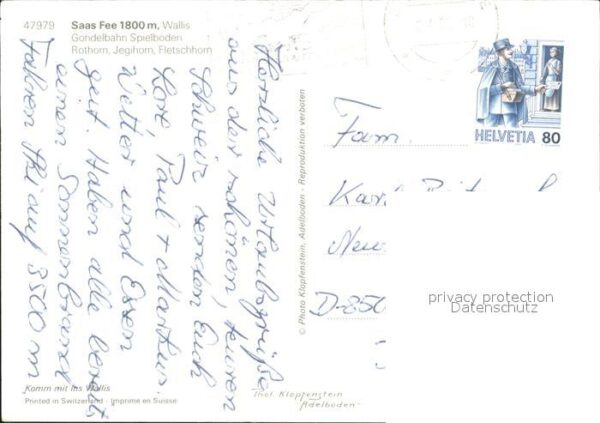 47979 Saas Fee 1800 m, Wallis
Gondelbahn Spielboden
Rothorn, Jegihorn, Fletschhorn
Herzliche Urlaubsgrüße
aus der schönen, teuren
Schweiz senden Euch
Lore Paul + Markus.
Wetter und Essen
gut. Haben alle bereits
einen Sonnenbrand
Fahren Ski auf 3500 m
Komm mit ins Wallis
Printed in Switzerland - Imprimé en Suisse
© Photo Klopfenstein, Adelboden - Reproduktion verboten
HELVETIA 80
Fam.
D-850
privacy protection
Datenschutz
Phot. Klopfenstein
Adelboden